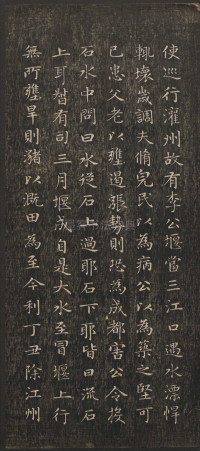 使巡行灌州故有李公堰當三江口遇水漂悍
輒壞歲調夫脩完民以為病公以為築之堅可
已患父老以壅遏張勢則恐為成都害公令投
石水中問曰水從石上過耶石下耶皆曰流石
上耳暂有司三月堰成自是大水至冒堰上行
無所壅旱則豬以溉田為至今利丁丑除江州